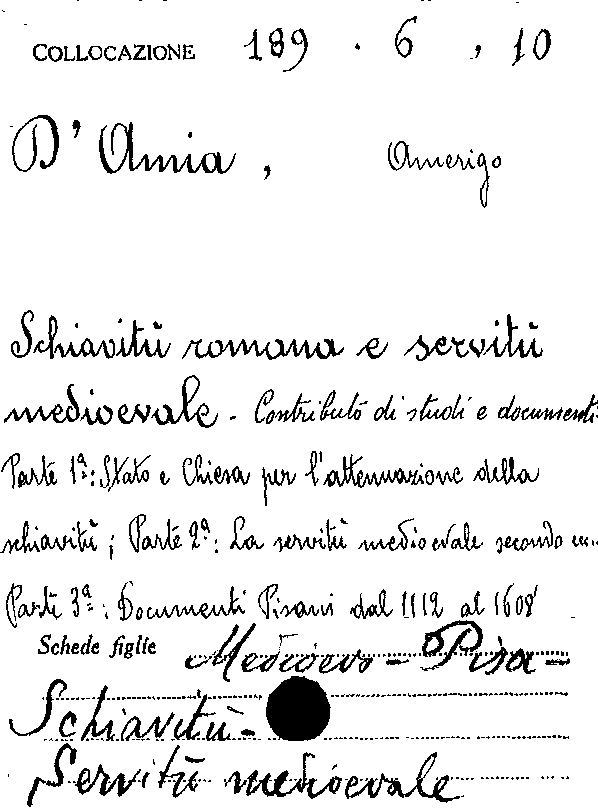 COLLOCAZIONE 189 . 6 , 10
D'Amia, Amerigo
Schiavitù romana e servitù
medioevale - Contributo di studi e documenti
Parte 1ª: Stato e Chiesa per l'attenuazione della
schiavitù; Parte 2ª: La servitù medioevale secondo
Parte 3ª: Documenti Pisani dal 1112 al 1608
Schede figlie Medioevo - Pisa -
Schiavitù -
Servitù medioevale